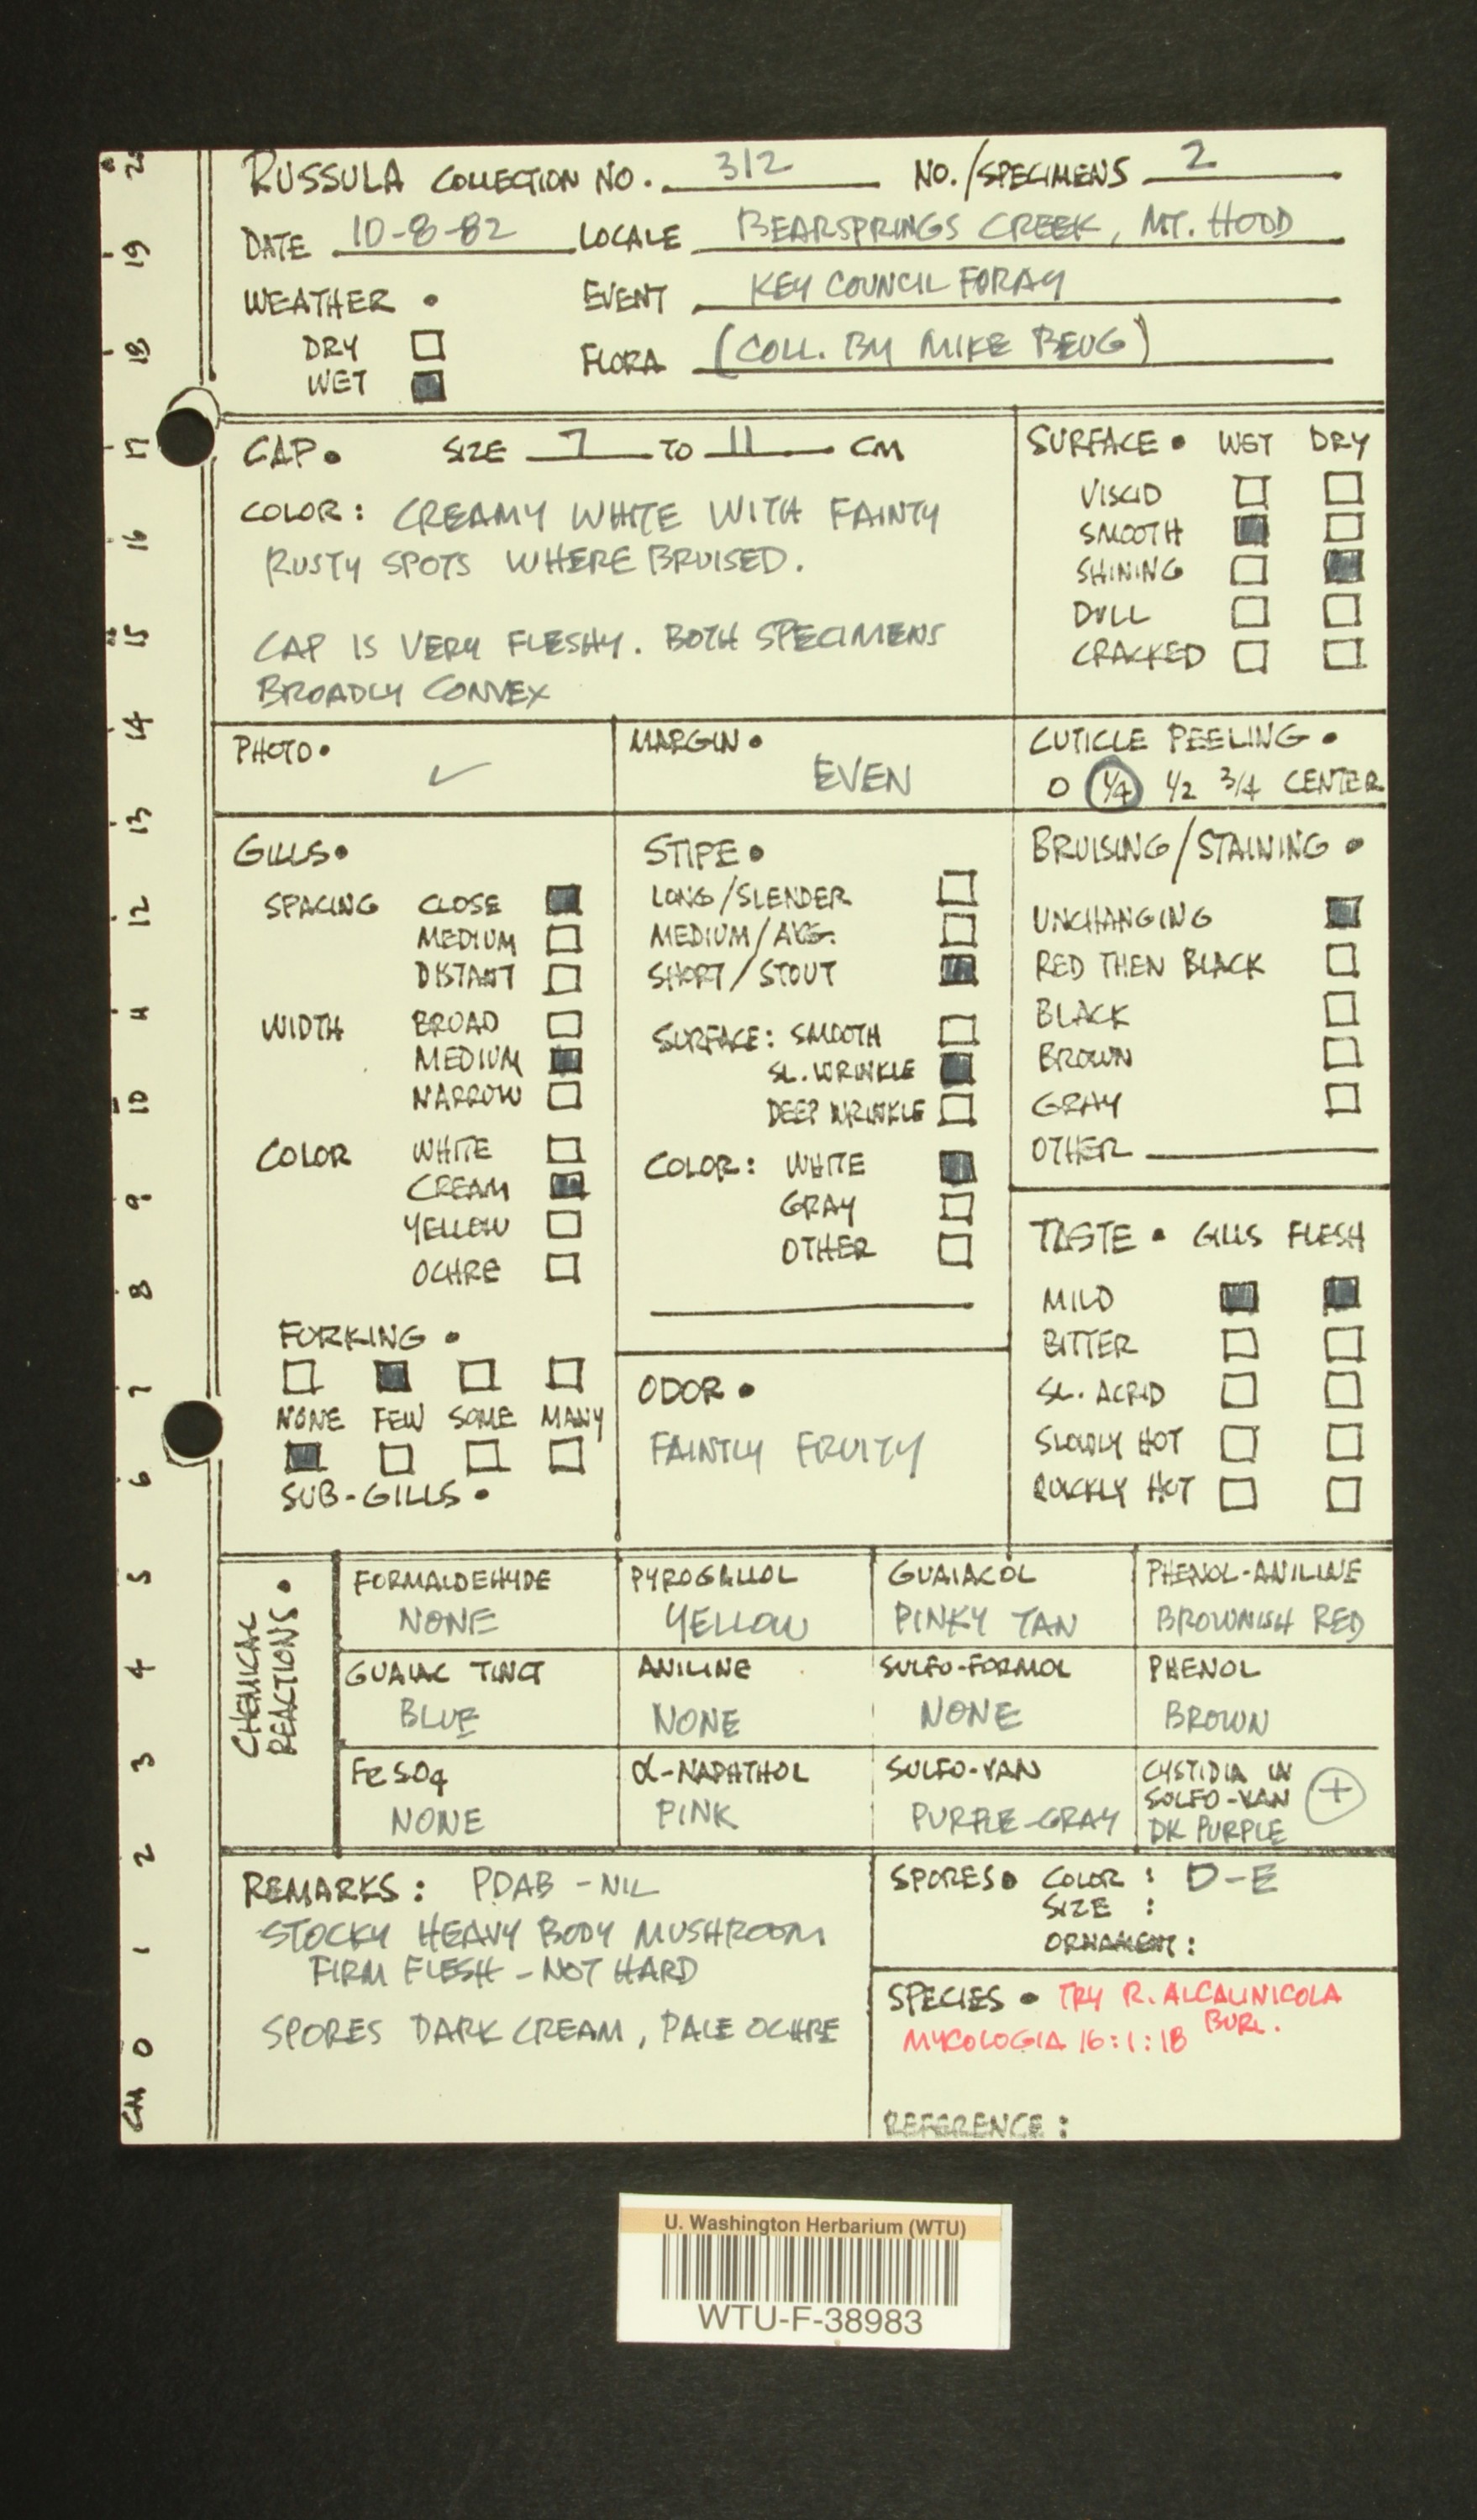 RUSSULA COLLECTION NO. 312 NO./SPECIMENS 2
DATE 10-8-82 LOCALE BEARSPRINGS CREEK, MT. HOOD
WEATHER • EVENT KEY COUNCIL FORAY
DRY
WET
FLORA (COLL. BY MIKE BEUG)
CAP • SIZE 7 TO 11 CM
COLOR: CREAMY WHITE WITH FAINTY
RUSTY SPOTS WHERE BRUISED.
CAP IS VERY FLESHY. BOTH SPECIMENS
BROADLY CONVEX
SURFACE • WET DRY
VISCID
SMOOTH
SHINING
DULL
CRACKED
PHOTO • ✓
MARGIN •
EVEN
CUTICLE PEELING •
0 1/4 1/2 3/4 CENTER
GILLS •
SPACING CLOSE
MEDIUM
DISTANT
WIDTH BROAD
MEDIUM
NARROW
COLOR WHITE
CREAM
YELLOW
OCHRE
FORKING •
NONE FEW SOME MANY
SUB-GILLS •
STIPE •
LONG/SLENDER
MEDIUM/AVG.
SHORT/STOUT
SURFACE: SMOOTH
SL. WRINKLE
DEEP WRINKLE
COLOR: WHITE
GRAY
OTHER
ODOR •
FAINTLY FRUITY
BRUISING/STAINING •
UNCHANGING
RED THEN BLACK
BLACK
BROWN
GRAY
OTHER
TASTE • GILLS FLESH
MILD
BITTER
SL. ACRID
SLOWLY HOT
QUICKLY HOT
CHEMICAL
REACTIONS •
FORMALDEHYDE PYROGALLOL GUAIACOL PHENOL-ANILINE
NONE YELLOW PINKY TAN BROWNISH RED
GUAIAC TINCT ANILINE SULFO-FORMOL PHENOL
BLUE NONE NONE BROWN
FeSO4 α-NAPHTHOL SULFO-VAN
NONE PINK PURPLE-GRAY
CYSTIDIA IN
SULFO-VAN +
DK PURPLE
REMARKS: PDAB - NIL
STOCKY HEAVY BODY MUSHROOM
FIRM FLESH - NOT HARD
SPORES DARK CREAM, PALE OCHRE
SPORES • COLOR: D-E
SIZE:
ORNAMENT:
SPECIES • TRY R. ALCALINICOLA
BURL.
MYCOLOGIA 16:1:18
REFERENCE:
20
19
18
17
16
15
14
13
12
11
10
9
8
7
6
5
4
3
2
1
0
CM
U. Washington Herbarium (WTU)
WTU-F-38983